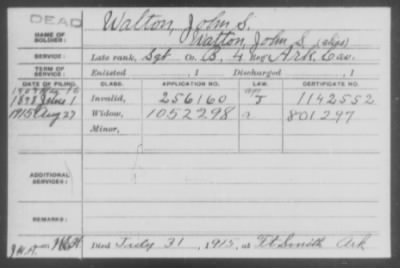 DEAD
Walton, John S.
NAME OF SOLDIER:
Watton, John S. (alias)
SERVICE:
Late rank, Sgt Co. B, 4 Reg't Ark. Cav.
TERM OF SERVICE:
Enlisted , 1 Discharged , 1
DATE OF FILING. CLASS. APPLICATION NO. LAW. CERTIFICATE NO.
1898 June 1 Invalid, 256160 J 1142552
1915 Aug 27 Widow, 1052298 a 801297
Minor,
ADDITIONAL SERVICES:
REMARKS:
Died July 31, 1915, at Ft Smith Ark